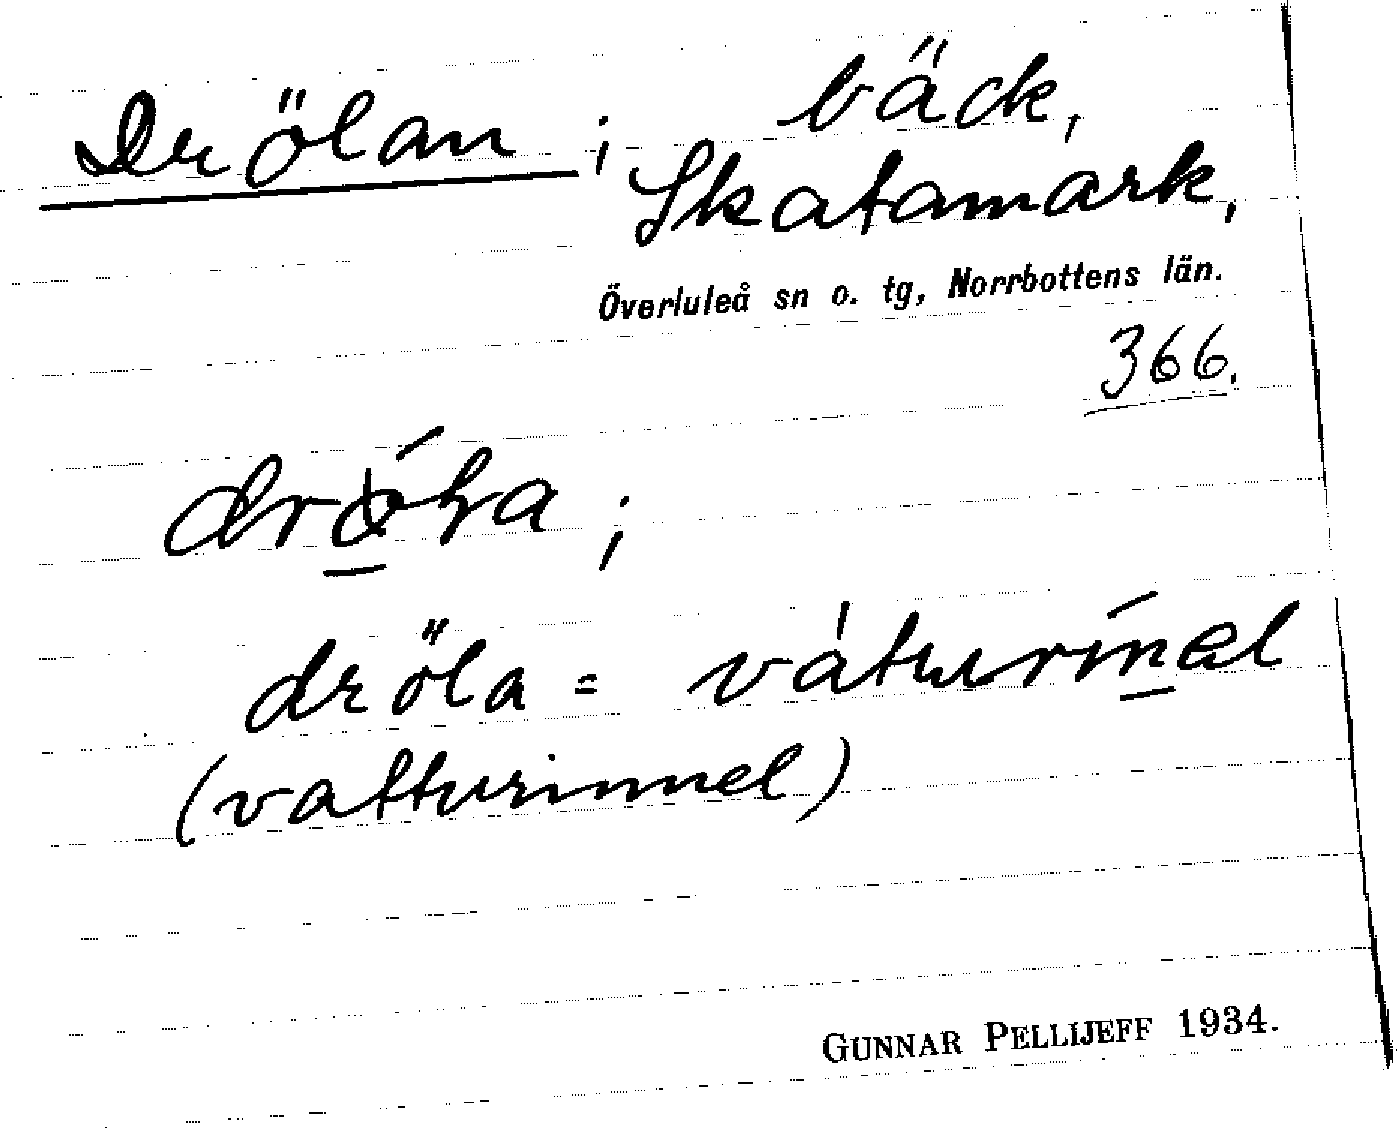 Drölan ; bäck,
Skatamark,
Överluleå sn o. tg, Norrbottens län.
366.
dröla = våturinel
(vatturinnel)
GUNNAR PELLIJEFF 1934.